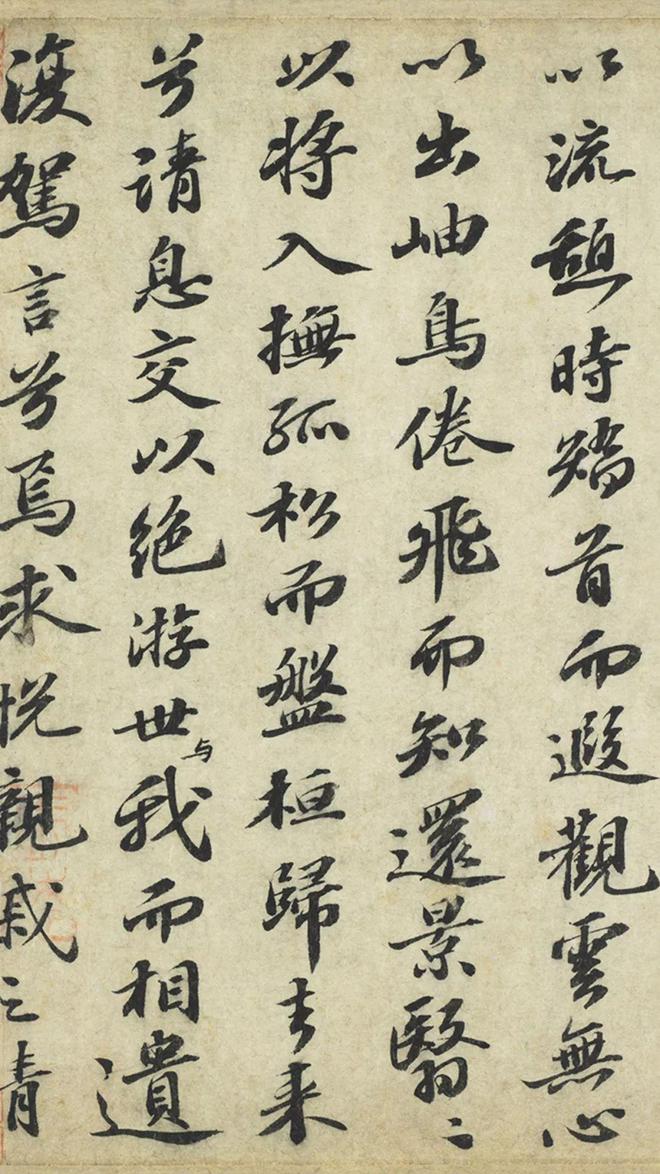 以流憩時矯首而遐觀雲無心
以出岫鳥倦飛而知還景翳〻
以將入撫孤松而盤桓歸去来
兮請息交以絶游世与我而相遺
復駕言兮焉求悅親戚之情